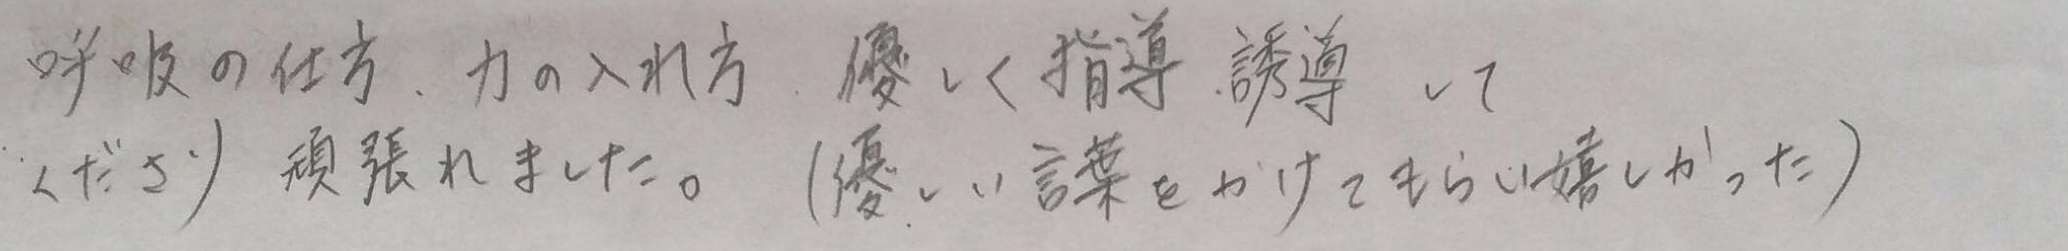 呼吸の仕方、力の入れ方、優しく指導、誘導して
くださり頑張れました。(優しい言葉をかけてもらい嬉しかった)